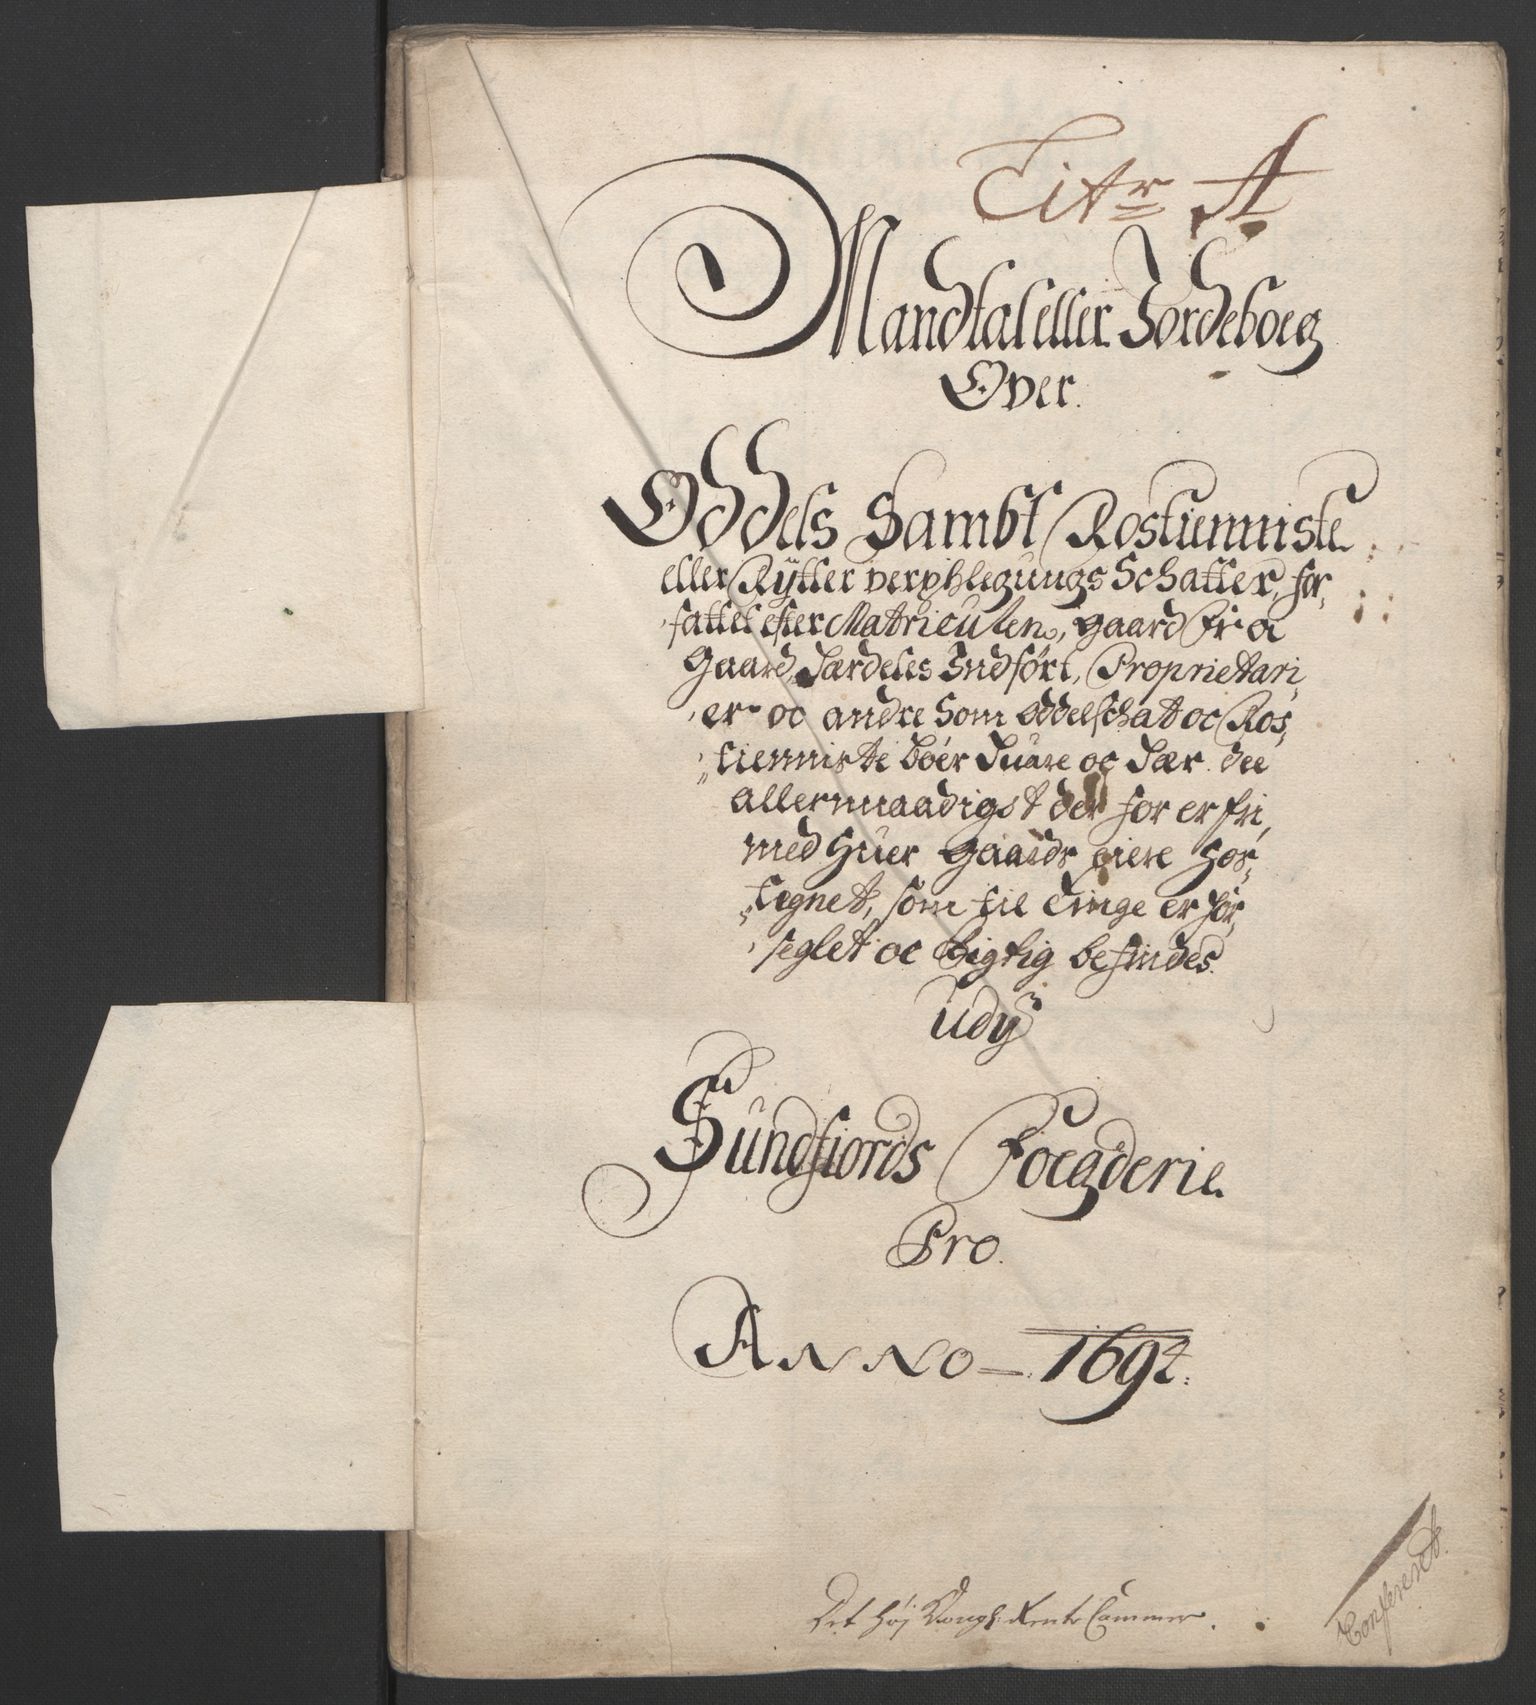 Litr A
Mandtal eller Jordeboeg
Over.
Oddels Sambt Rostienniste
eller Rytter verphlegungs Schatter, for,
fattet efter Matriculen, gaard fra
Gaard, Særdeles Indført, Proprietari,
er oc andre Som oddelschat oc Ros,
tienniste bøer Suare oc Sær dee
allernaadigst der for er fri,
med Huer gaards eiere hos,
tegnet, som til Tinge er for,
seglet oc Rigtig befindes.
udj
Sundfiords Foegderie.
Pro.
Anno - 1692.
Det høj Kongl: Rente Cammer.
Confereret.